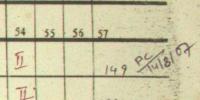 54 55 56 57
II 149 PC 14/8/07
II